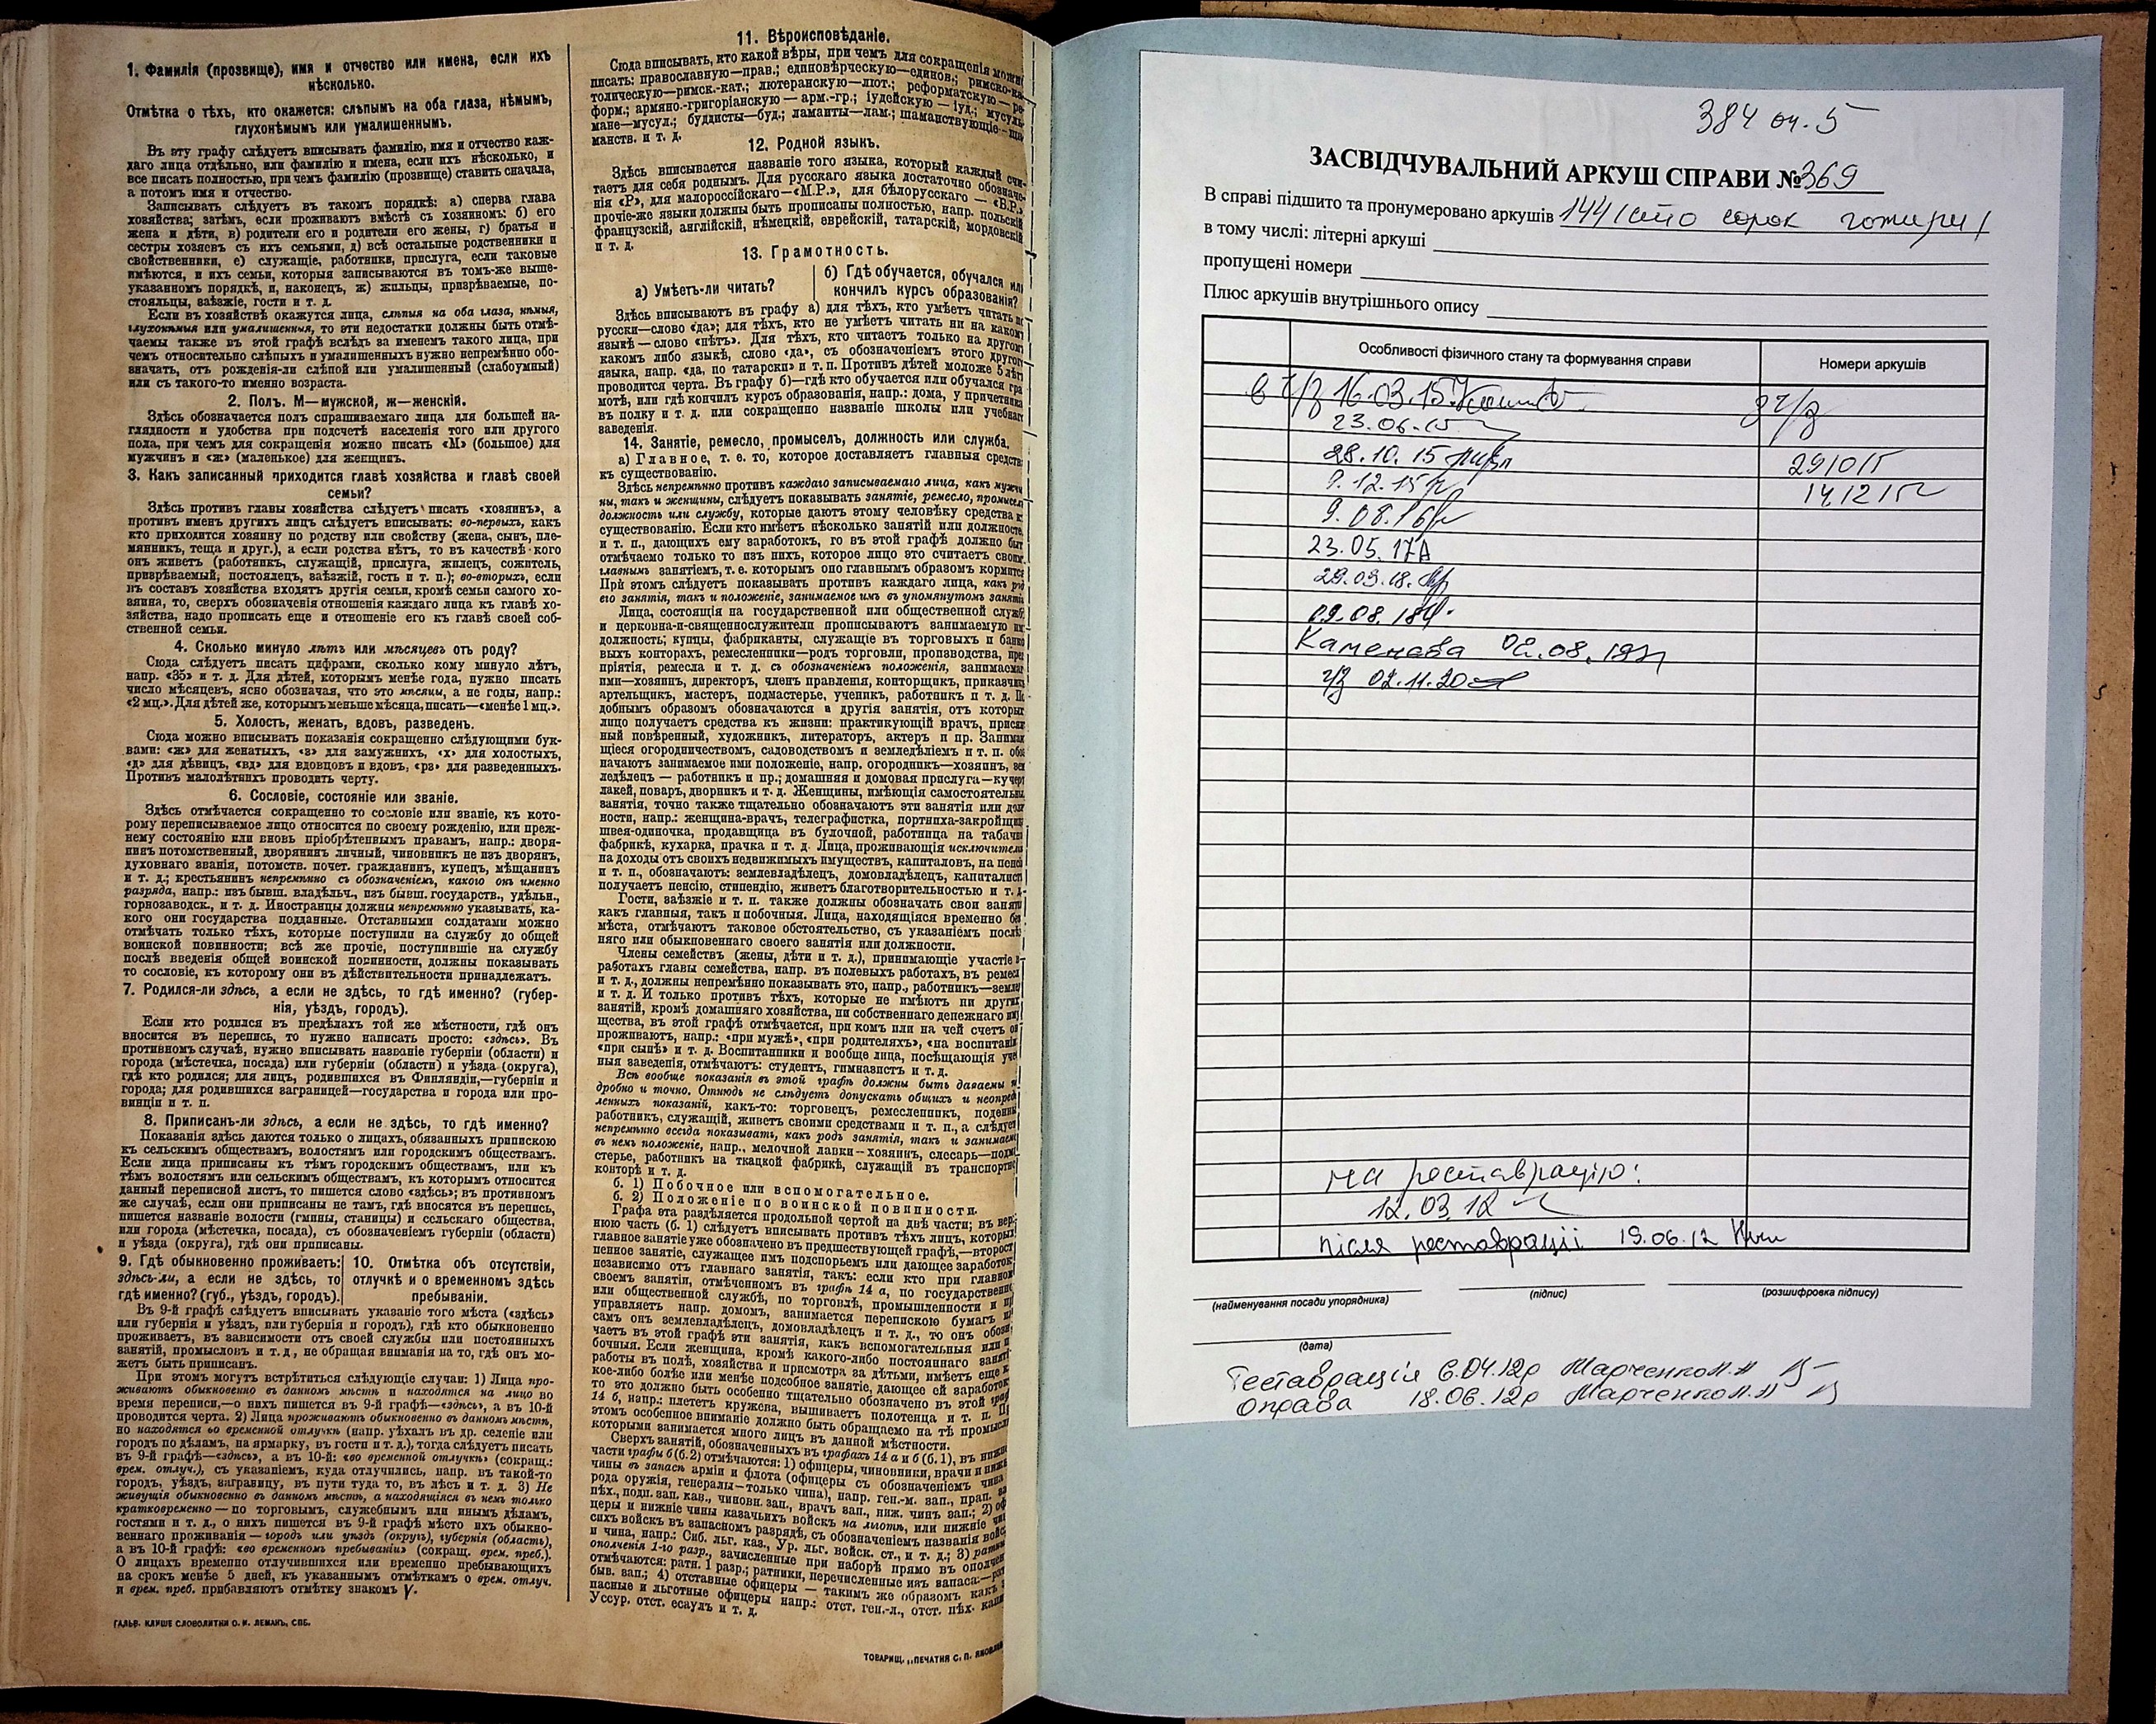 1. Фамилія (прозвище), имя и отчество или имена, если ихъ
нѣсколько.
Отмѣтка о тѣхъ, кто окажется: слѣпымъ на оба глаза, нѣмымъ,
глухонѣмымъ или умалишеннымъ.
Въ эту графу слѣдуетъ вписывать фамилію, имя и отчество каж-
даго лица отдѣльно, или фамилію и имена, если ихъ нѣсколько, и
все писать полностью, при чемъ фамилію (прозвище) ставить сначала,
а потомъ имя и отчество.
Записывать слѣдуетъ въ такомъ порядкѣ: а) сперва глава
хозяйства; затѣмъ, если проживаютъ вмѣстѣ съ хозяиномъ: б) его
жена и дѣти, в) родители его и родители его жены, г) братья и
сестры хозяевъ съ ихъ семьями, д) всѣ остальные родственники и
свойственники, е) служащіе, работники, прислуга, если таковые
имѣются, и ихъ семьи, которыя записываются въ томъ-же выше-
указанномъ порядкѣ, и, наконецъ, ж) жильцы, призрѣваемые, по-
стояльцы, заѣзжіе, гости и т. д.
Если въ хозяйствѣ окажутся лица, слѣпыя на оба глаза, нѣмыя,
глухонѣмыя или умалишенныя, то эти недостатки должны быть отмѣ-
чаемы также въ этой графѣ вслѣдъ за именемъ такого лица, при
чемъ относительно слѣпыхъ и умалишенныхъ нужно непремѣнно обо-
значать, отъ рожденія-ли слѣпой или умалишенный (слабоумный)
или съ такого-то именно возраста.
2. Полъ. М—мужской, ж—женскій.
Здѣсь обозначается полъ спрашиваемаго лица для большей на-
глядности и удобства при подсчетѣ населенія того или другого
пола, при чемъ для сокращенія можно писать «М» (большое) для
мужчинъ и «ж» (маленькое) для женщинъ.
3. Какъ записанный приходится главѣ хозяйства и главѣ своей
семьи?
Здѣсь противъ главы хозяйства слѣдуетъ писать «хозяинъ», а
противъ именъ другихъ лицъ слѣдуетъ вписывать: во-первыхъ, какъ
кто приходится хозяину по родству или свойству (жена, сынъ, пле-
мянникъ, теща и друг.), а если родства нѣтъ, то въ качествѣ кого
онъ живетъ (работникъ, служащій, прислуга, жилецъ, сожитель,
призрѣваемый, постоялецъ, заѣзжій, гость и т. п.); во-вторыхъ, если
въ составъ хозяйства входятъ другія семьи, кромѣ семьи самого хо-
зяина, то, сверхъ обозначенія отношенія каждаго лица къ главѣ хо-
зяйства, надо прописать еще и отношеніе его къ главѣ своей соб-
ственной семьи.
4. Сколько минуло лѣтъ или мѣсяцевъ отъ роду?
Сюда слѣдуетъ писать цифрами, сколько кому минуло лѣтъ,
напр. «35» и т. д. Для дѣтей, которымъ менѣе года, нужно писать
число мѣсяцевъ, ясно обозначая, что это мѣсяцы, а не годы, напр.:
«2 мц.». Для дѣтей же, которымъ меньше мѣсяца, писать—«менѣе 1 мц.».
5. Холостъ, женатъ, вдовъ, разведенъ.
Сюда можно вписывать показанія сокращенно слѣдующими бук-
вами: «ж» для женатыхъ, «з» для замужнихъ, «х» для холостыхъ,
«д» для дѣвицъ, «вд» для вдовцовъ и вдовъ, «рз» для разведенныхъ.
Противъ малолѣтнихъ проводить черту.
6. Сословіе, состояніе или званіе.
Здѣсь отмѣчается сокращенно то сословіе или званіе, къ кото-
рому переписываемое лицо относится по своему рожденію, или преж-
нему состоянію или вновь пріобрѣтеннымъ правамъ, напр.: дворя-
нинъ потомственный, дворянинъ личный, чиновникъ не изъ дворянъ,
духовнаго званія, потомств. почет. гражданинъ, купецъ, мѣщанинъ
и т. д.; крестьянинъ непремѣнно съ обозначеніемъ, какого онъ именно
разряда, напр.: изъ бывш. владѣльч., изъ бывш. государств., удѣльн.,
горнозаводск., и т. д. Иностранцы должны непремѣнно указывать, ка-
кого они государства подданные. Отставными солдатами можно
отмѣчать только тѣхъ, которые поступили на службу до общей
воинской повинности; всѣ же прочіе, поступившіе на службу
послѣ введенія общей воинской повинности, должны показывать
то сословіе, къ которому они въ дѣйствительности принадлежатъ.
7. Родился-ли здѣсь, а если не здѣсь, то гдѣ именно? (губер-
нія, уѣздъ, городъ).
Если кто родился въ предѣлахъ той же мѣстности, гдѣ онъ
вносится въ перепись, то нужно написать просто: «здѣсь». Въ
противномъ случаѣ, нужно вписывать названіе губерніи (области) и
города (мѣстечка, посада) или губерніи (области) и уѣзда (округа),
гдѣ кто родился; для лицъ, родившихся въ Финляндіи,—губерніи и
города; для родившихся заграницей—государства и города или про-
винціи и т. п.
8. Приписанъ-ли здѣсь, а если не здѣсь, то гдѣ именно?
Показанія здѣсь даются только о лицахъ, обязанныхъ припискою
къ сельскимъ обществамъ, волостямъ или городскимъ обществамъ.
Если лица приписаны къ тѣмъ городскимъ обществамъ, или къ
тѣмъ волостямъ или сельскимъ обществамъ, къ которымъ относится
данный переписной листъ, то пишется слово «здѣсь»; въ противномъ
же случаѣ, если они приписаны не тамъ, гдѣ вносятся въ перепись,
пишется названіе волости (гмины, станицы) и сельскаго общества,
или города (мѣстечка, посада), съ обозначеніемъ губерніи (области)
и уѣзда (округа), гдѣ они приписаны.
9. Гдѣ обыкновенно проживаетъ:
здѣсь-ли, а если не здѣсь, то
гдѣ именно? (губ., уѣздъ, городъ).
10. Отмѣтка объ отсутствіи,
отлучкѣ и о временномъ здѣсь
пребываніи.
Въ 9-й графѣ слѣдуетъ вписывать указаніе того мѣста («здѣсь»
или губернія и уѣздъ, или губернія и городъ), гдѣ кто обыкновенно
проживаетъ, въ зависимости отъ своей службы или постоянныхъ
занятій, промысловъ и т. д., не обращая вниманія на то, гдѣ онъ мо-
жетъ быть приписанъ.
При этомъ могутъ встрѣтиться слѣдующіе случаи: 1) Лица про-
живаютъ обыкновенно въ данномъ мѣстѣ и находятся на лицо во
время переписи,—о нихъ пишется въ 9-й графѣ—«здѣсь», а въ 10-й
проводится черта. 2) Лица проживаютъ обыкновенно въ данномъ мѣстѣ,
но находятся во временной отлучкѣ (напр. уѣхалъ въ др. селеніе или
городъ по дѣламъ, на ярмарку, въ гости и т. д.), тогда слѣдуетъ писать
въ 9-й графѣ—«здѣсь», а въ 10-й: «во временной отлучкѣ» (сокращ.:
врем. отлуч.), съ указаніемъ, куда отлучились, напр. въ такой-то
городъ, уѣздъ, заграницу, въ пути туда то, въ лѣсъ и т. д. 3) Не
живущія обыкновенно въ данномъ мѣстѣ, а находящіяся въ немъ только
кратковременно — по торговымъ, служебнымъ или инымъ дѣламъ,
гостями и т. д., о нихъ пишется въ 9-й графѣ мѣсто ихъ обыкно-
веннаго проживанія — городъ или уѣздъ (округъ), губернія (область),
а въ 10-й графѣ: «во временномъ пребываніи» (сокращ. врем. преб.).
О лицахъ временно отлучившихся или временно пребывающихъ
на срокъ менѣе 5 дней, къ указаннымъ отмѣткамъ о врем. отлуч.
и врем. преб. прибавляютъ отмѣтку знакомъ V.
ГАЛЬВ. КЛИШЕ СЛОВОЛИТНИ О. И. ЛЕМАНЪ, СПБ.
11. Вѣроисповѣданіе.
Сюда вписывать, кто какой вѣры, при чемъ для сокращенія можно
писать: православную—прав.; единовѣрческую—единов.; римско-ка-
толическую—римск.-кат.; лютеранскую—лют.; реформатскую—ре-
форм.; армяно.-григоріанскую — арм.-гр.; іудейскую — іуд.; мусуль-
мане—мусул.; буддисты—буд.; ламаиты—лам.; шаманствующіе—ша-
манств. и т. д.
12. Родной языкъ.
Здѣсь вписывается названіе того языка, который каждый счи-
таетъ для себя роднымъ. Для русскаго языка достаточно обозначе-
нія «Р», для малороссійскаго—«М.Р.», для бѣлорусскаго — «Б.Р.»,
прочіе-же языки должны быть прописаны полностью, напр. польскій
французскій, англійскій, нѣмецкій, еврейскій, татарскій, мордовскій
и т. д.
13. Грамотность.
а) Умѣетъ-ли читать?
б) Гдѣ обучается, обучался или
кончилъ курсъ образованія?
Здѣсь вписываютъ въ графу а) для тѣхъ, кто умѣетъ читать по
русски—слово «да»; для тѣхъ, кто не умѣетъ читать ни на какомъ
языкѣ — слово «нѣтъ». Для тѣхъ, кто читаетъ только на другомъ
какомъ либо языкѣ, слово «да», съ обозначеніемъ этого другого
языка, напр. «да, по татарски» и т. п. Противъ дѣтей моложе 5 лѣтъ
проводится черта. Въ графу б)—гдѣ кто обучается или обучался гра
мотѣ, или гдѣ кончилъ курсъ образованія, напр.: дома, у причетника
въ полку и т. д. или сокращенно названіе школы или учебнаг
заведенія.
14. Занятіе, ремесло, промыселъ, должность или служба.
а) Главное, т. е. то, которое доставляетъ главныя средств
къ существованію.
Здѣсь непремѣнно противъ каждаго записываемаго лица, какъ мужчи
ны, такъ и женщины, слѣдуетъ показывать занятіе, ремесло, промысел
должность или службу, которые даютъ этому человѣку средства к
существованію. Если кто имѣетъ нѣсколько занятій или должносте
и т. п., дающихъ ему заработокъ, то въ этой графѣ должно быт
отмѣчаемо только то изъ нихъ, которое лицо это считаетъ своим
главнымъ занятіемъ, т. е. которымъ оно главнымъ образомъ кормится
При этомъ слѣдуетъ показывать противъ каждаго лица, какъ род
его занятія, такъ и положеніе, занимаемое имъ въ упомянутомъ занятіи
Лица, состоящія на государственной или общественной служб
и церковна-и-священнослужители прописываютъ занимаемую им
должность; купцы, фабриканты, служащіе въ торговыхъ и банко
выхъ конторахъ, ремесленники—родъ торговли, производства, пред
пріятія, ремесла и т. д. съ обозначеніемъ положенія, занимаемаг
ими—хозяинъ, директоръ, членъ правленія, конторщикъ, приказчикъ
артельщикъ, мастеръ, подмастерье, ученикъ, работникъ и т. д. По
добнымъ образомъ обозначаются и другія занятія, отъ которых
лицо получаетъ средства къ жизни: практикующій врачъ, присяж
ный повѣренный, художникъ, литераторъ, актеръ и пр. Занимаю
щіеся огородничествомъ, садоводствомъ и земледѣліемъ и т. п. обоз
начаютъ занимаемое ими положеніе, напр. огородникъ—хозяинъ, зем
ледѣлецъ — работникъ и пр.; домашняя и домовая прислуга—кучер
лакей, поваръ, дворникъ и т. д. Женщины, имѣющія самостоятельны
занятія, точно также тщательно обозначаютъ эти занятія или долж
ности, напр.: женщина-врачъ, телеграфистка, портниха-закройщиц
швея-одиночка, продавщица въ булочной, работница на табачн
фабрикѣ, кухарка, прачка и т. д. Лица, проживающія исключительн
на доходы отъ своихъ недвижимыхъ имуществъ, капиталовъ, на пенсі
и т. п., обозначаютъ: землевладѣлецъ, домовладѣлецъ, капиталист
получаетъ пенсію, стипендію, живетъ благотворительностью и т. д.
Гости, заѣзжіе и т. п. также должны обозначать свои заняті
какъ главныя, такъ и побочныя. Лица, находящіяся временно без
мѣста, отмѣчаютъ таковое обстоятельство, съ указаніемъ послѣд
няго или обыкновеннаго своего занятія или должности.
Члены семействъ (жены, дѣти и т. д.), принимающіе участіе в
работахъ главы семейства, напр. въ полевыхъ работахъ, въ ремесл
и т. д., должны непремѣнно показывать это, напр., работникъ—землед
и т. д. И только противъ тѣхъ, которые не имѣютъ ни других
занятій, кромѣ домашняго хозяйства, ни собственнаго денежнаго иму
щества, въ этой графѣ отмѣчается, при комъ или на чей счетъ он
проживаютъ, напр.: «при мужѣ», «при родителяхъ», «на воспитаніи
«при сынѣ» и т. д. Воспитанники и вообще лица, посѣщающія учеб
ныя заведенія, отмѣчаютъ: студентъ, гимназистъ и т. д.
Всѣ вообще показанія въ этой графѣ должны быть даваемы по
дробно и точно. Отнюдь не слѣдуетъ допускать общихъ и неопредѣ
ленныхъ показаній, какъ-то: торговецъ, ремесленникъ, поденщ
работникъ, служащій, живетъ своими средствами и т. п., а слѣдует
непремѣнно всегда показывать, какъ родъ занятія, такъ и занимаем
въ немъ положеніе, напр., мелочной лавки--хозяинъ, слесарь—подма
стерье, работникъ на ткацкой фабрикѣ, служащій въ транспортн
конторѣ и т. д.
б. 1) Побочное или вспомогательное.
б. 2) Положеніе по воинской повинности.
Графа эта раздѣляется продольной чертой на двѣ части; въ верх
нюю часть (б. 1) слѣдуетъ вписывать противъ тѣхъ лицъ, которых
главное занятіе уже обозначено въ предшествующей графѣ,—второст
пенное занятіе, служащее имъ подспорьемъ или дающее заработок
независимо отъ главнаго занятія, такъ: если кто при главном
своемъ занятіи, отмѣченномъ въ графѣ 14 а, по государственн
или общественной службѣ, по торговлѣ, промышленности и пр
управляетъ напр. домомъ, занимается перепискою бумагъ и
самъ онъ землевладѣлецъ, домовладѣлецъ и т. д., то онъ обозн
чаетъ въ этой графѣ эти занятія, какъ вспомогательныя или п
бочныя. Если женщина, кромѣ какого-либо постояннаго занят
работы въ полѣ, хозяйства и присмотра за дѣтьми, имѣетъ еще к
кое-либо болѣе или менѣе подсобное занятіе, дающее ей заработок
то это должно быть особенно тщательно обозначено въ этой граф
14 б, напр.: плететъ кружева, вышиваетъ полотенца и т. п. П
этомъ особенное вниманіе должно быть обращаемо на тѣ промысл
которыми занимается много лицъ въ данной мѣстности.
Сверхъ занятій, обозначенныхъ въ графахъ 14 а и б (б. 1), въ нижне
части графы б (б.2) отмѣчаются: 1) офицеры, чиновники, врачи и нижн
чины въ запасѣ арміи и флота (офицеры съ обозначеніемъ чина
рода оружія, генералы—только чина), напр. ген.-м. зап., прап. за
пѣх., подп. зап. кав., чиновн. зап., врачъ зап., ниж. чинъ зап.; 2) оф
церы и нижніе чины казачьихъ войскъ на льготѣ, или нижніе чи
сихъ войскъ въ запасномъ разрядѣ, съ обозначеніемъ названія войс
и чина, напр.: Сиб. льг. каз., Ур. льг. войск. ст., и т. д.; 3) ратни
ополченія 1-го разр., зачисленные при наборѣ прямо въ ополчен
отмѣчаются: ратн. 1 разр.; ратники, перечисленные изъ запаса:—рат
быв. зап.; 4) отставные офицеры — такимъ же образомъ какъ з
пасные и льготные офицеры напр.: отст. ген.-л., отст. пѣх. капи
Уссур. отст. есаулъ и т. д.
ТОВАРИЩ. „ПЕЧАТНЯ С. П. ЯКОВЛЕ
384 оп. 5
ЗАСВІДЧУВАЛЬНИЙ АРКУШ СПРАВИ № 369
В справі підшито та пронумеровано аркушів 144 (сто сорок чотири)
в тому числі: літерні аркуші
пропущені номери
Плюс аркушів внутрішнього опису
Особливості фізичного стану та формування справи
Номери аркушів
в ч/з 16.03.15
з ч/з
23.06.15
28.10.15
29/10/15
9.12.15
14/12/15
9.08.16
23.05.17
29.03.18.
09.08.18
Каменєва 02.08.19
ч/з 02.11.20
на реставрацію:
12.03.12
після реставрації 19.06.12
(найменування посади упорядника)
(підпис)
(розшифровка підпису)
(дата)
Реставрація 6.04.12р Марченко Л.Л
Оправа 18.06.12р Марченко Л.Л